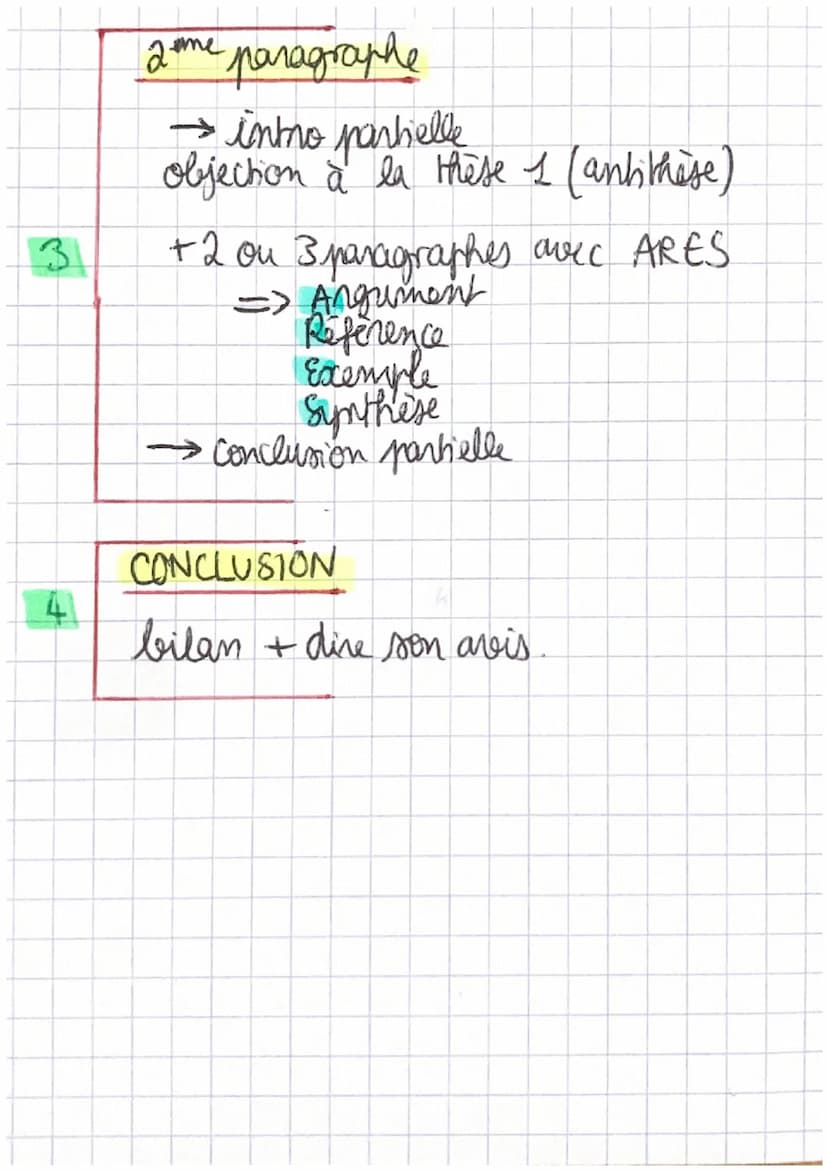 2ème paragraphe
→ intro partielle
objection à la thèse 1 (antithèse)
3
+2 ou 3 paragraphes avec ARES
=> Argument
Référence
Exemple
Synthèse
→ conclusion partielle
CONCLUSION
4
bilan + dire son avis.